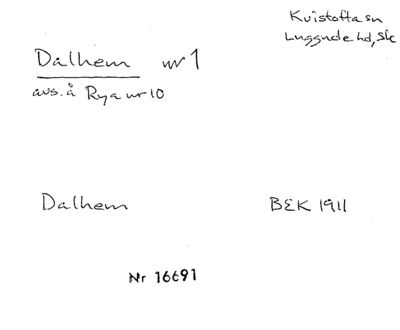 Kvistofta sn
Luggude hd, Sk
Dalhem nr 1
avs. å Rya nr 10
Dalhem
BEK 1911
Nr 16691